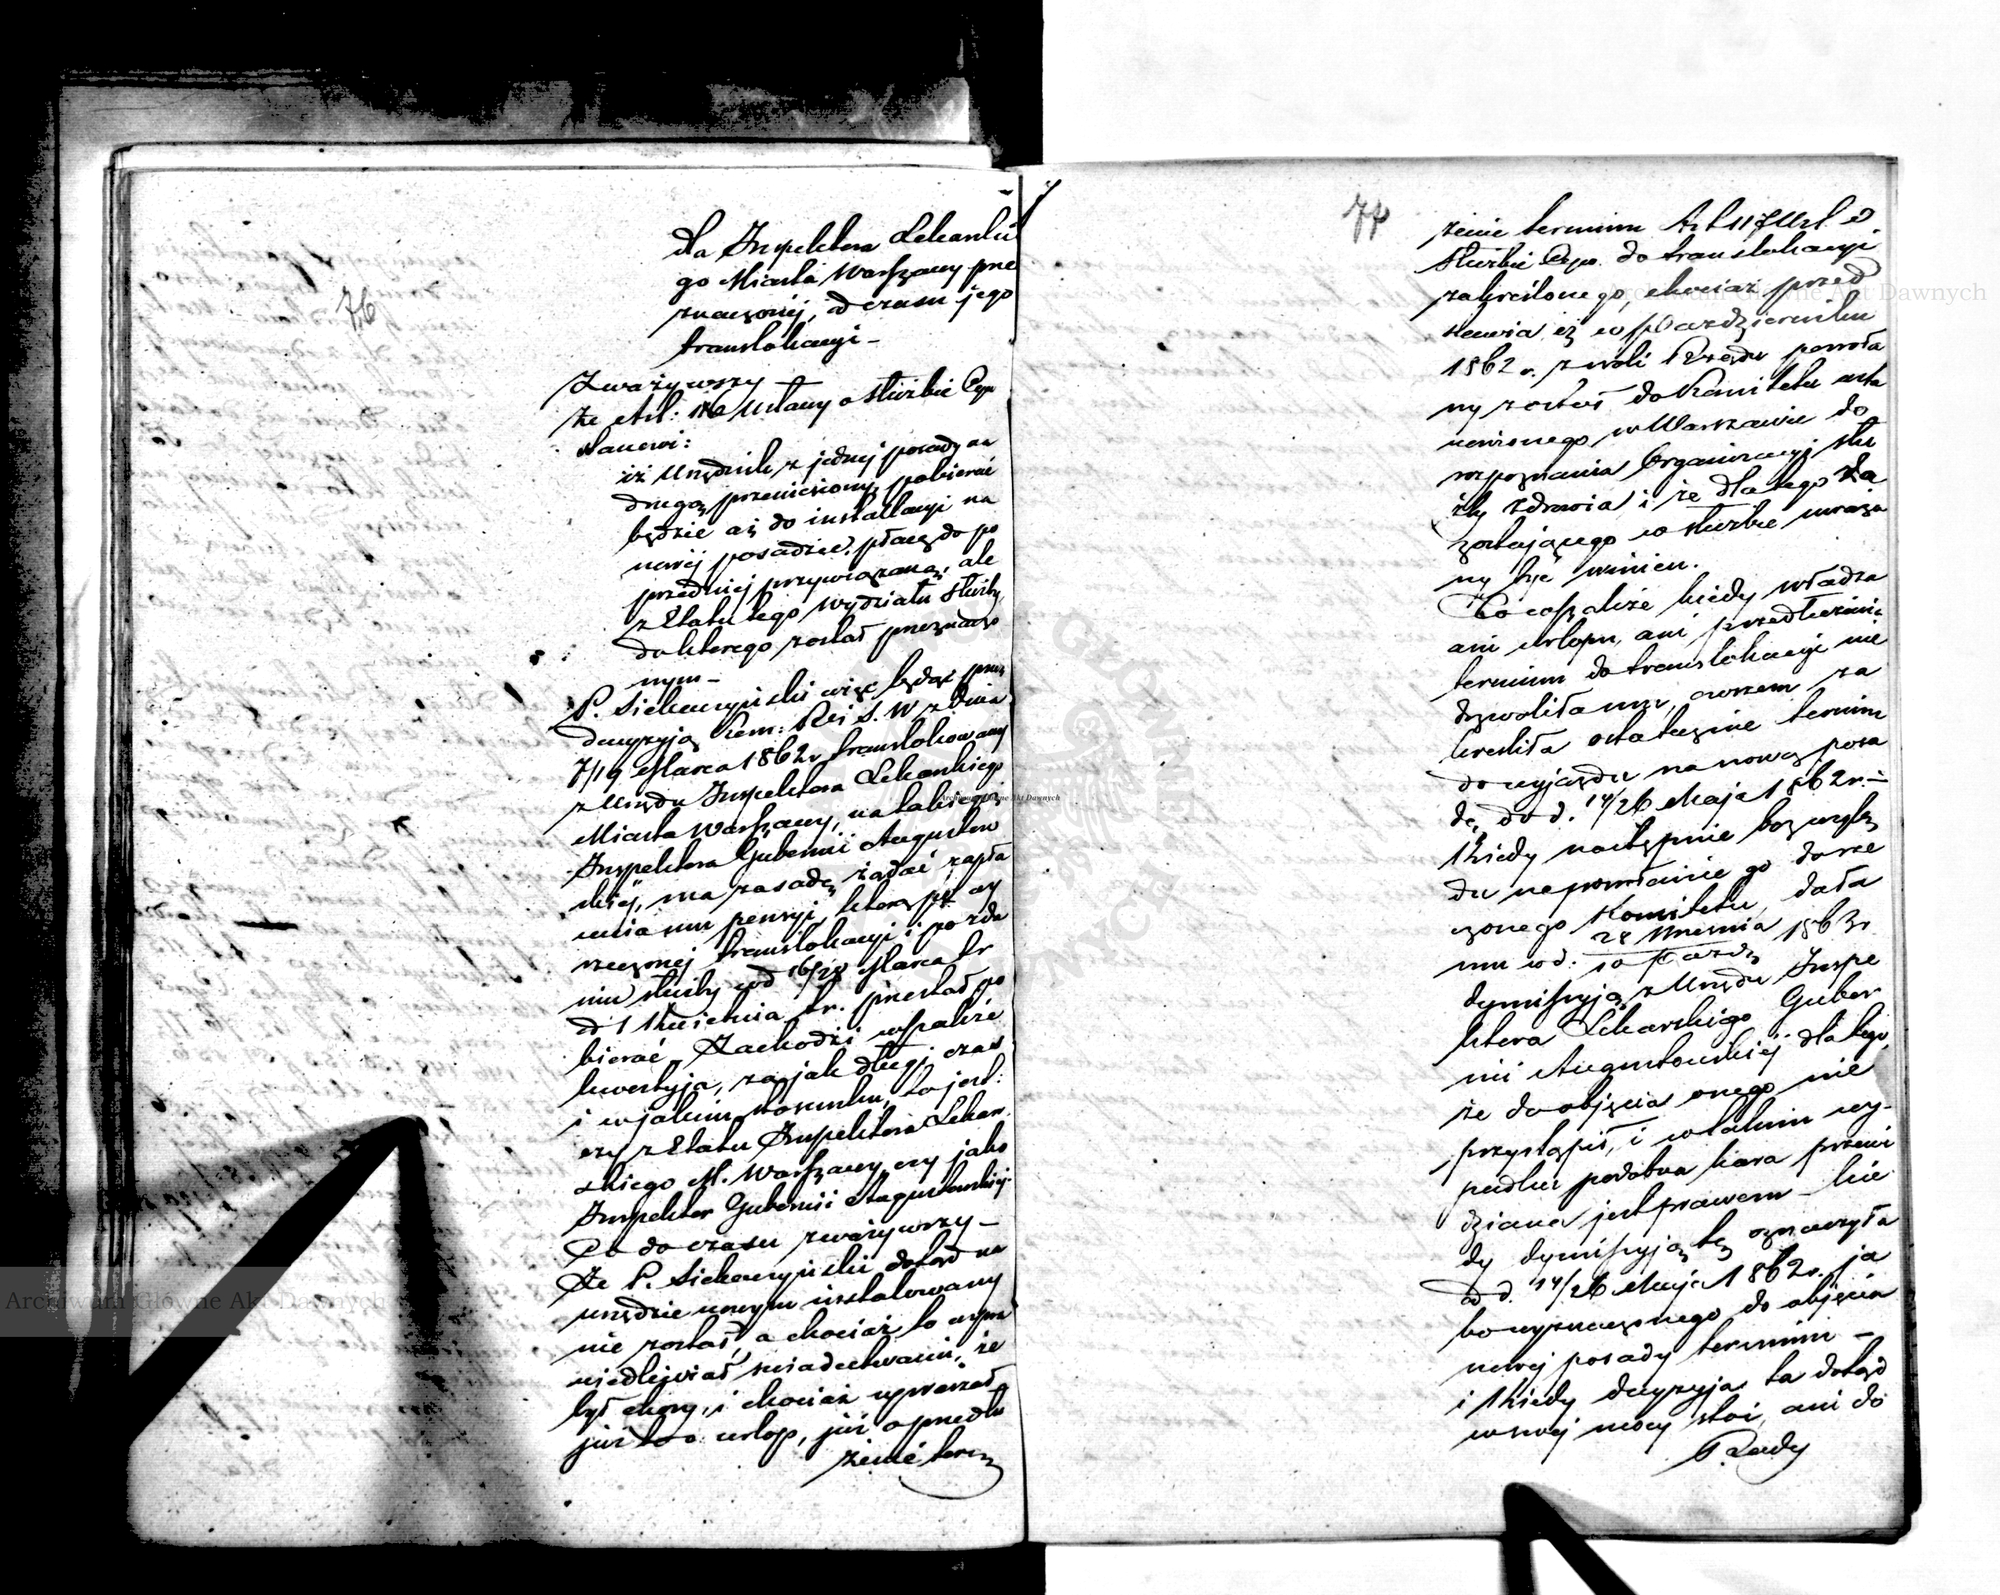 76
dla Inspektora Lekarski
go Miasta Warszawy prze
znaczonéj, od czasu jego
translokacyi –
Zważywszy
Że Art: Ustawy o służbie Cyw
stanowi:
iż Urzędnik z jednej posady na
drugą przeniesiony, pobierać
będzie aż do installacyi na
nowéj posadzie, płacę do po
przedniéj przywiązaną, ale
z Etatu tego Wydziału Służby
do którego został przeznaczo
nym –
P. Siekaczyński więc będąc przez
decyzyją Kom: Rz: S. W z dnia
7/19 Marca 1862 r. translokowany
z Urzędu Inspektora Lekarskiego
Miasta Warszawy, na takiegoż
Inspektora Gubernii Augustow
skiéj, ma zasadę żądać zapła
cenia mu pensyi, którą przy
rzeczonej translokacyi i po zda
niu służby w d 16/28 Marca t. r
od 1 Kwietnia t. r. przestał po
bierać. Zachodzi wszakże
kwestyja, za jak długi czas
i w jakim stosunku, to jest:
czy z Etatu Inspektora Lekar
skiego M. Warszawy, czy jako
Inspektor Gubernii Augustowskiej.
Co do czasu zważywszy –
Że P. Siekaczyński dotąd na
urzędzie nowym installowany
nie został, a chociaż to uspra
wiedliwiał świadectwami, że
był chory, i chociaż upraszał
już to o urlop, już o przedłu
żenie term
77
żenie terminu Art 117 Ust. o
Służbie Cyw. do translokacyi
zakreślonego, chociaż przed
stawia iż w Październiku
1862 r. z woli Rządu powoła
ny został do Komitetu usta
nowionego w Warszawie do
rozpoznania Organizacyi słu
żby zdrowia i że dla tego za
zostającego w służbie uważa
ny być winien.
Co wszakże kiedy władza
ani urlopu, ani przedłużenia
terminu do translokacyi nie
dozwoliła mu, owszem za
kreśliła ostatecznie termin
do wyjazdu na nową posa
dę, do d. 14/26 Maja 1862 r. –
Kiedy następnie bez wzglę
du na powołanie go do rze
czonego Komitetu, dała
mu w d. 28 Września / 10 Paźdź 1863 r
dymissyją z Urzędu Inspe
ktora Lekarskiego Guber
nii Augustowskiéj dla tego,
że do objęcia onego nie
przystąpił, i w takim wy-
padku podobna kara przewi
dziana jest prawem – kie
dy dymissyją tę oznaczyła
od d. 14/26 Maja 1862 r. ja
ko wyznaczonego do objęcia
nowej posady terminu –
i Kiedy decyzyja ta dotąd
w swej mocy stoi, ani do
Rady
Archiwum Główne Akt Dawnych
Archiwum Główne Akt Dawnych
Archiwum Główne Akt Dawnych